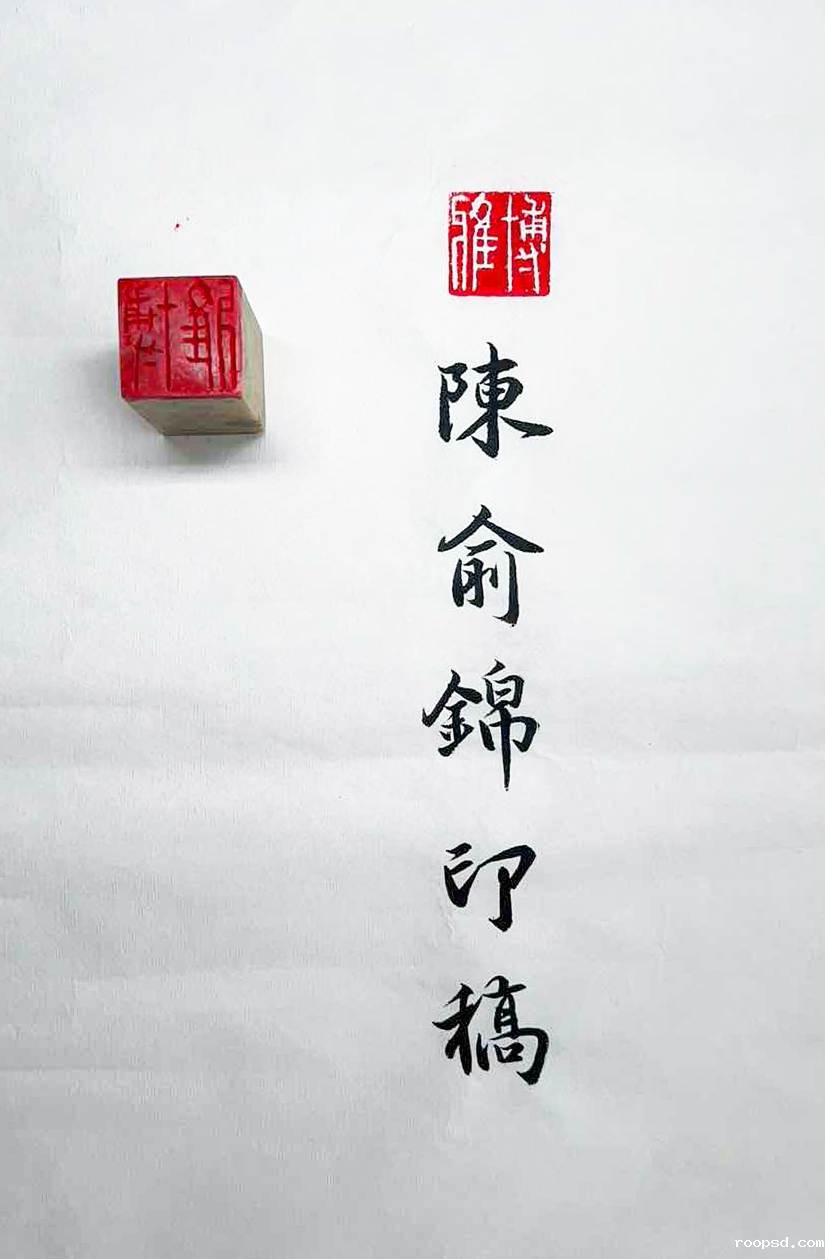 博雅
陳俞錦印稿
roopsd.com